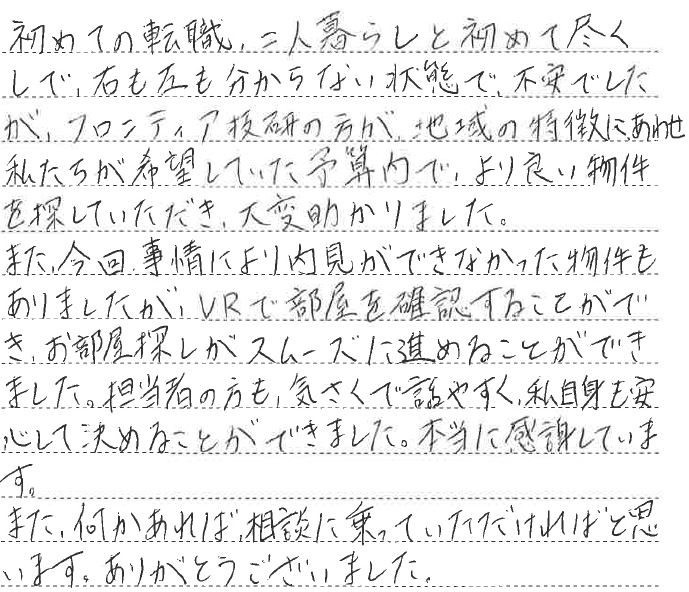 初めての転職、二人暮らしと初めて尽く
しで、右も左も分からない状態で、不安でした
が、フロンティア技研の方が、地域の特徴にあわせ
私たちが希望していた予算内で、より良い物件
を探していただき、大変助かりました。
また、今回、事情により内見ができなかった物件も
ありましたが、VRで部屋を確認することがで
き、お部屋探しがスムーズに進めることができ
ました。担当者の方も、気さくで話やすく、私自身も安
心して決めることができました。本当に感謝していま
す。
また、何かあれば、相談に乗っていただければと思
います。ありがとうございました。